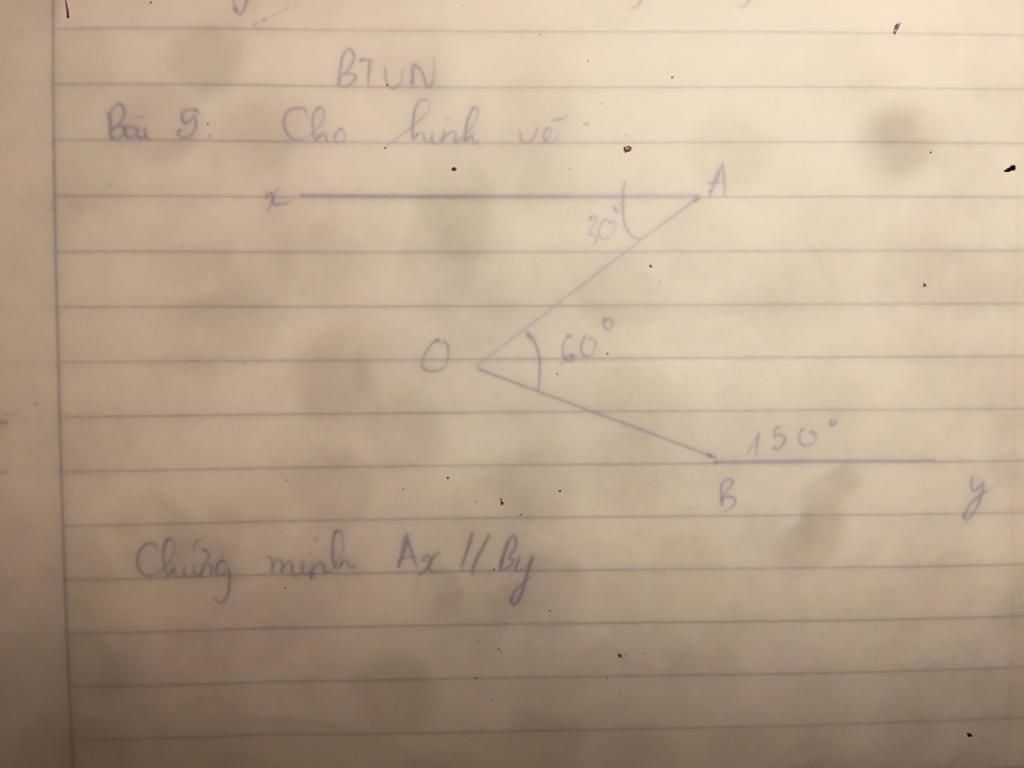 BTVN
Bài 9: Cho hình vẽ
x A
30°
O 60°
150°
B y
Chứng minh Ax // By